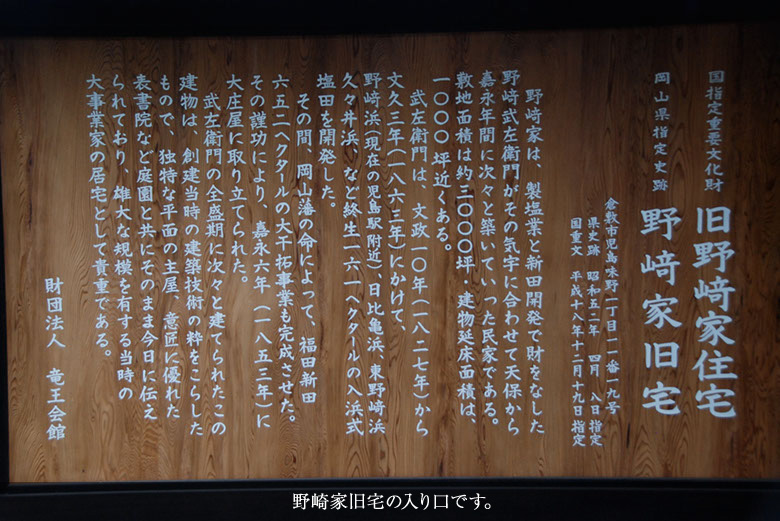 国指定重要文化財
旧野﨑家住宅
岡山県指定史跡
野﨑家旧宅
倉敷市児島味野一丁目一一番一九号
県史跡 昭和五二年 四月 八日指定
国重文 平成十八年十二月十九日指定
野﨑家は、製塩業と新田開発で財をなした
野﨑武左衛門がその気宇に合わせて天保から
嘉永年間に次々と築いていった民家である。
敷地面積は約三〇〇〇坪、建物延床面積は、
一〇〇〇坪近くある。
武左衛門は、文政一〇年(一八二七年)から
文久三年(一八六三年)にかけて、
野﨑浜(現在の児島駅附近)、日比亀浜、東野﨑浜
久々井浜、など終生一六一ヘクタールの入浜式
塩田を開発した。
その間、岡山藩の命によって、福田新田
六五二ヘクタールの大干拓事業も完成させた。
その謹功により、嘉永六年(一八五三年)に
大庄屋に取り立てられた。
武左衛門の全盛期に次々と建てられたこの
建物は、創建当時の建築技術の粋をこらした
もので、独特な平面の主屋、意匠に優れた
表書院など庭園と共にそのまま今日に伝え
られており、雄大な規模を有する当時の
大事業家の居宅として貴重である。
財団法人 竜王会館
野崎家旧宅の入り口です。